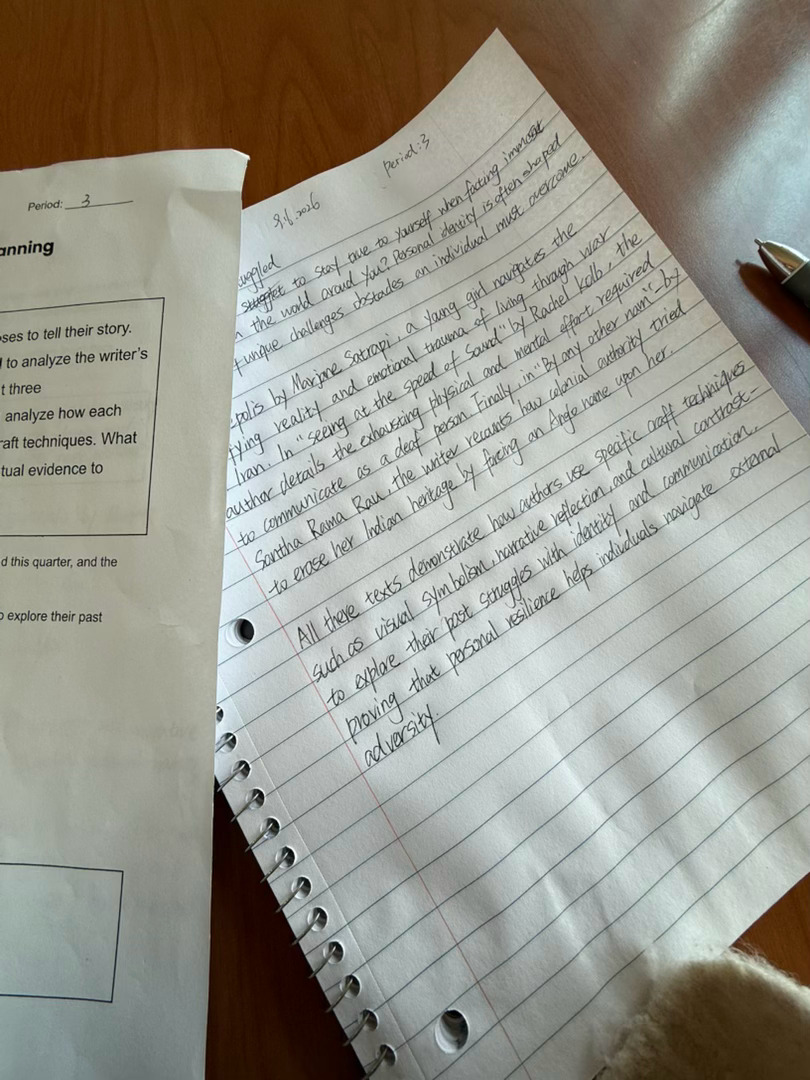 Period: 3
anning
oses to tell their story.
to analyze the writer's
t three
analyze how each
raft techniques. What
tual evidence to
d this quarter, and the
o explore their past
9.6.2026
Period:3
uggled
to stay true to yourself when facting immost
the world aroud You? Personal identity is often shaped
unique challenges obstacles an individual must overcome.
polis by Marjane Satrapi, a young girl navigates the
fying reality and emotional trauma of living through war
Iran. In "seeing at the speed of Sound" by Rachel Kolb, the
author details the exhausting physical and mental effort required
to communicate as a deaf person Finally in "By any other nam"-by
Santha Rama Rau, the writer recants how colonial authority tried
to erase her Indian heritage by forcing an Ango name upon her
All these texts demonstrate how authors use specific craft techniques
such as visual symbolsm, narrative reflection, and cultural contrast-
to explore their past struggles with identity and communication,
proving that personal resilience helps individuals navigate external
adversity.